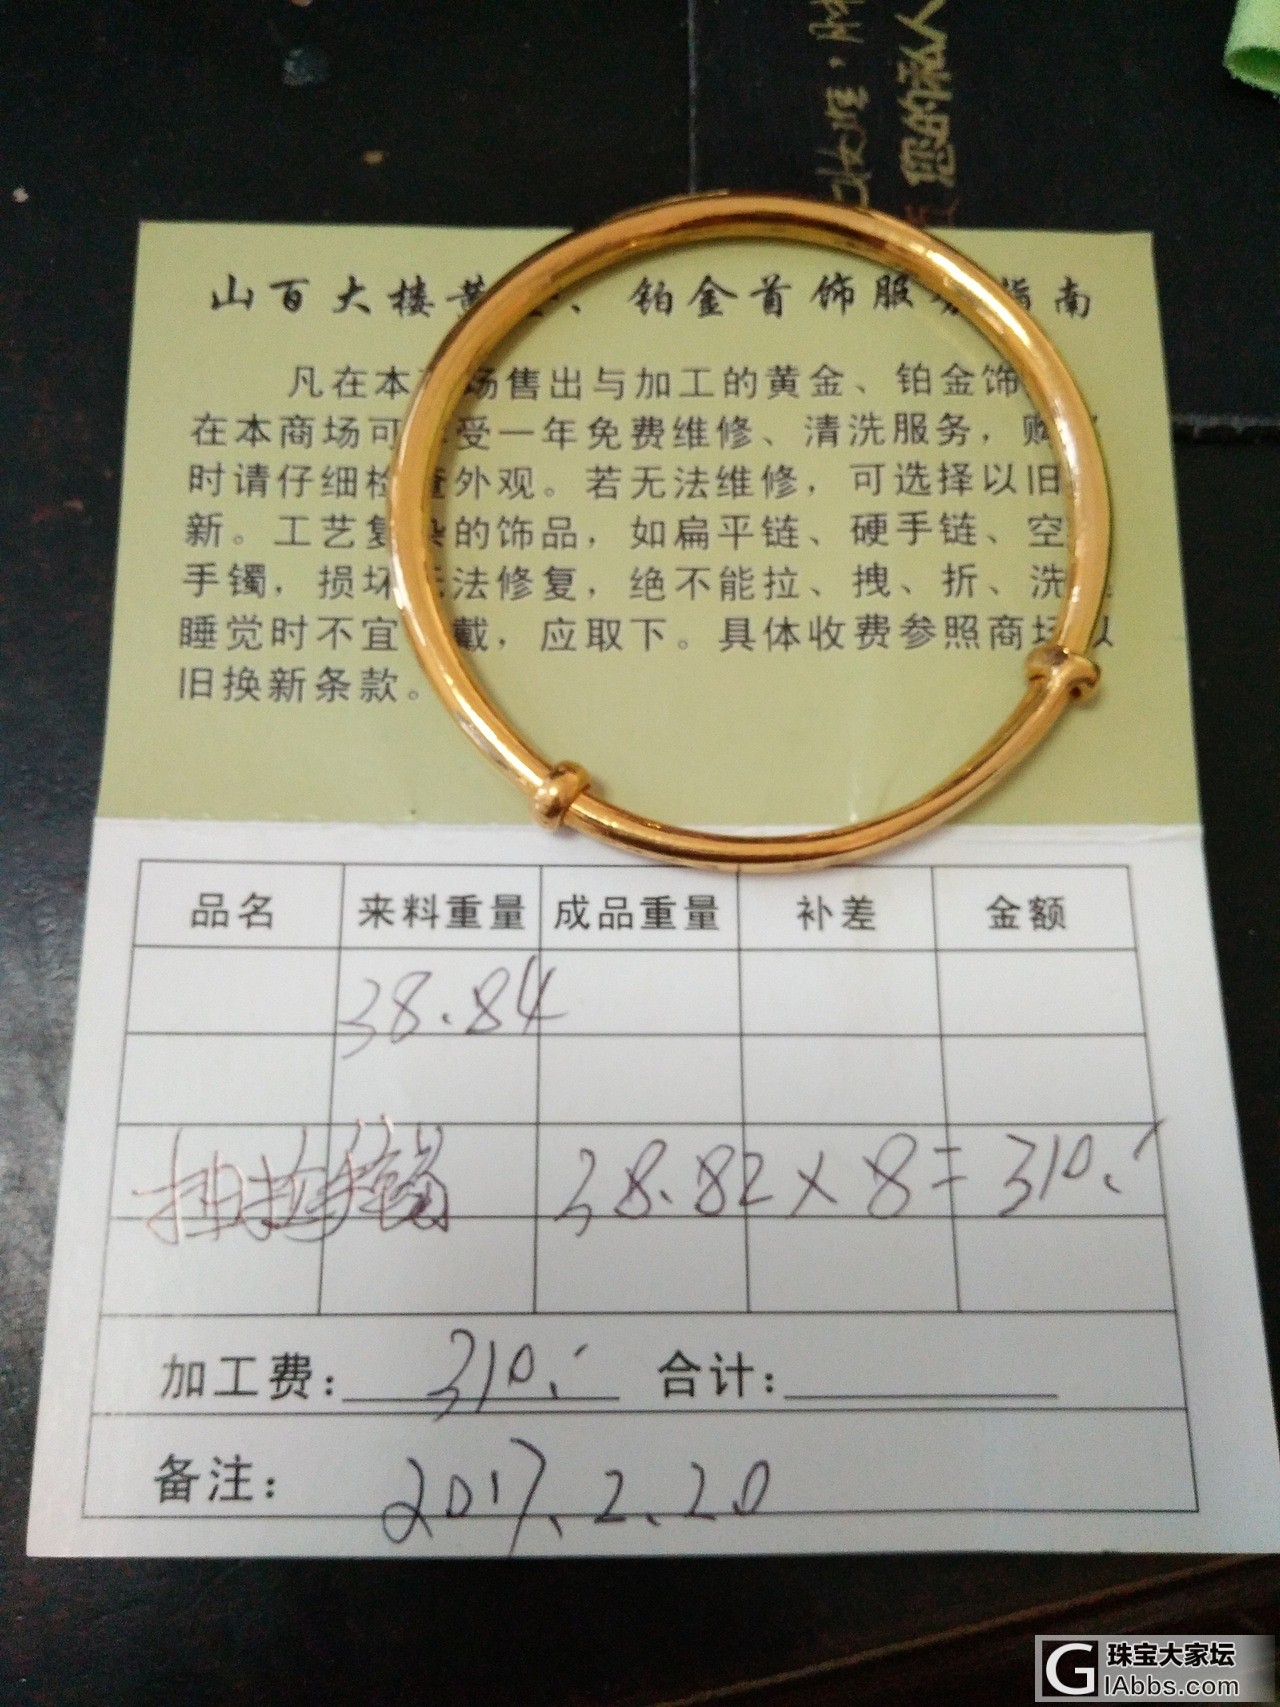 您的私人
山百大楼黄、铂金首饰服指南
凡在本场售出与加工的黄金、铂金饰
在本商场可受一年免费维修、清洗服务，购
时请仔细检查外观。若无法维修，可选择以旧
新。工艺复杂的饰品，如扁平链、硬手链、空
手镯，损坏无法修复，绝不能拉、拽、折、洗
睡觉时不宜戴，应取下。具体收费参照商场以
旧换新条款。
品名 来料重量 成品重量 补差 金额
38.84
抽拉手镯 38.82×8=310.-
加工费：310.- 合计：
备注：2017.2.20
G 珠宝大家坛
GIAbbs.com